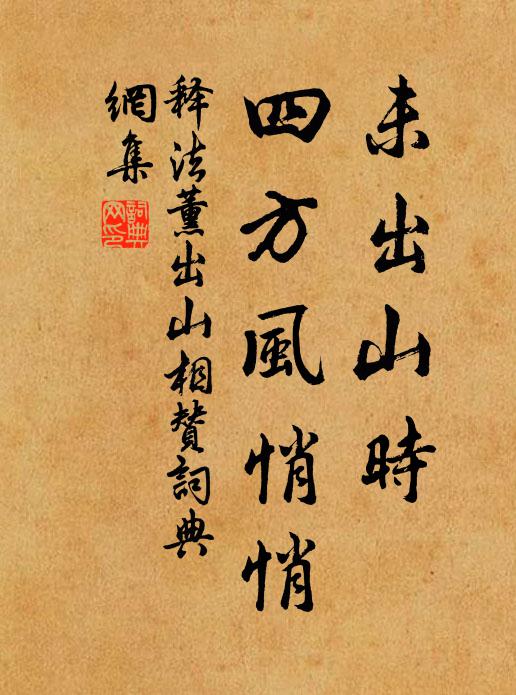 未出山時
四方風悄悄
释法薰出山相赞詞典
網集
詞典网印